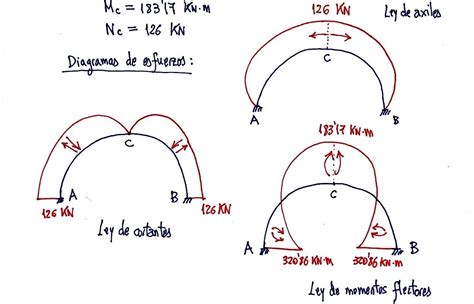 Mc = 183'17 KN·m
Nc = 126 KN
Diagramas de esfuerzos:
126 KN
Ley de axiles
C
A
B
C
A
B
126 KN
126 KN
Ley de cortantes
183'17 KN·m
C
A
B
320'86 KN·m
320'86 KN·m
Ley de momentos flectores